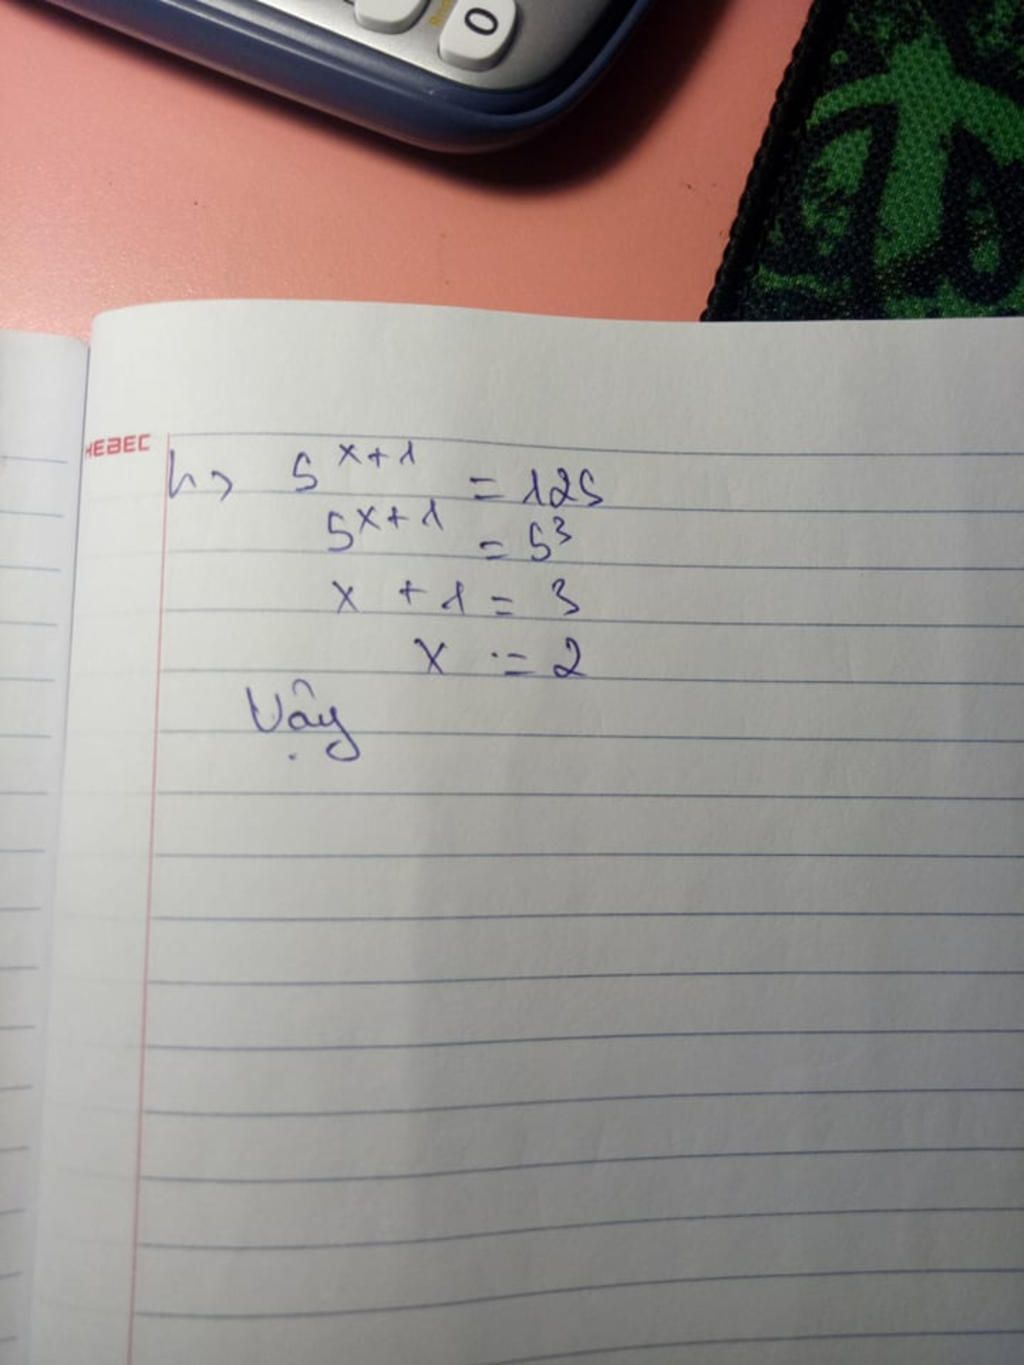 0
HEBEC
h, 5^{x+1} = 125
5^{x+1} = 5³
x + 1 = 3
x = 2
Vậy